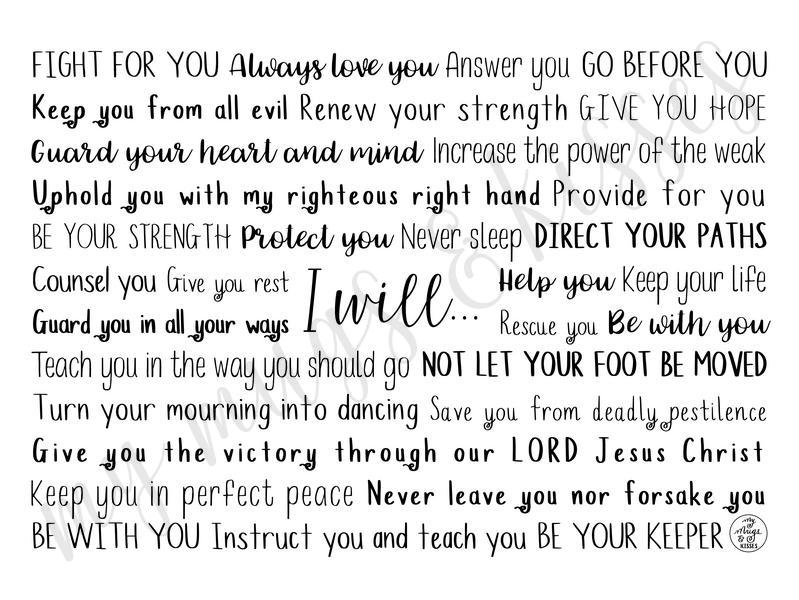 FIGHT FOR YOU Always love you Answer you GO BEFORE YOU
Keep you from all evil Renew your strength GIVE YOU HOPE
Guard your heart and mind Increase the power of the weak
Uphold you with my righteous right hand Provide for you
BE YOUR STRENGTH Protect you Never sleep DIRECT YOUR PATHS
Counsel you Give you rest
Guard you in all your ways
I will...
Help you Keep your life
Rescue you Be with you
Teach you in the way you should go NOT LET YOUR FOOT BE MOVED
Turn your mourning into dancing Save you from deadly pestilence
Give you the victory through our LORD Jesus Christ
Keep you in perfect peace Never leave you nor forsake you
BE WITH YOU Instruct you and teach you BE YOUR KEEPER
my
mugs
&
KISSES
my mugs & kisses